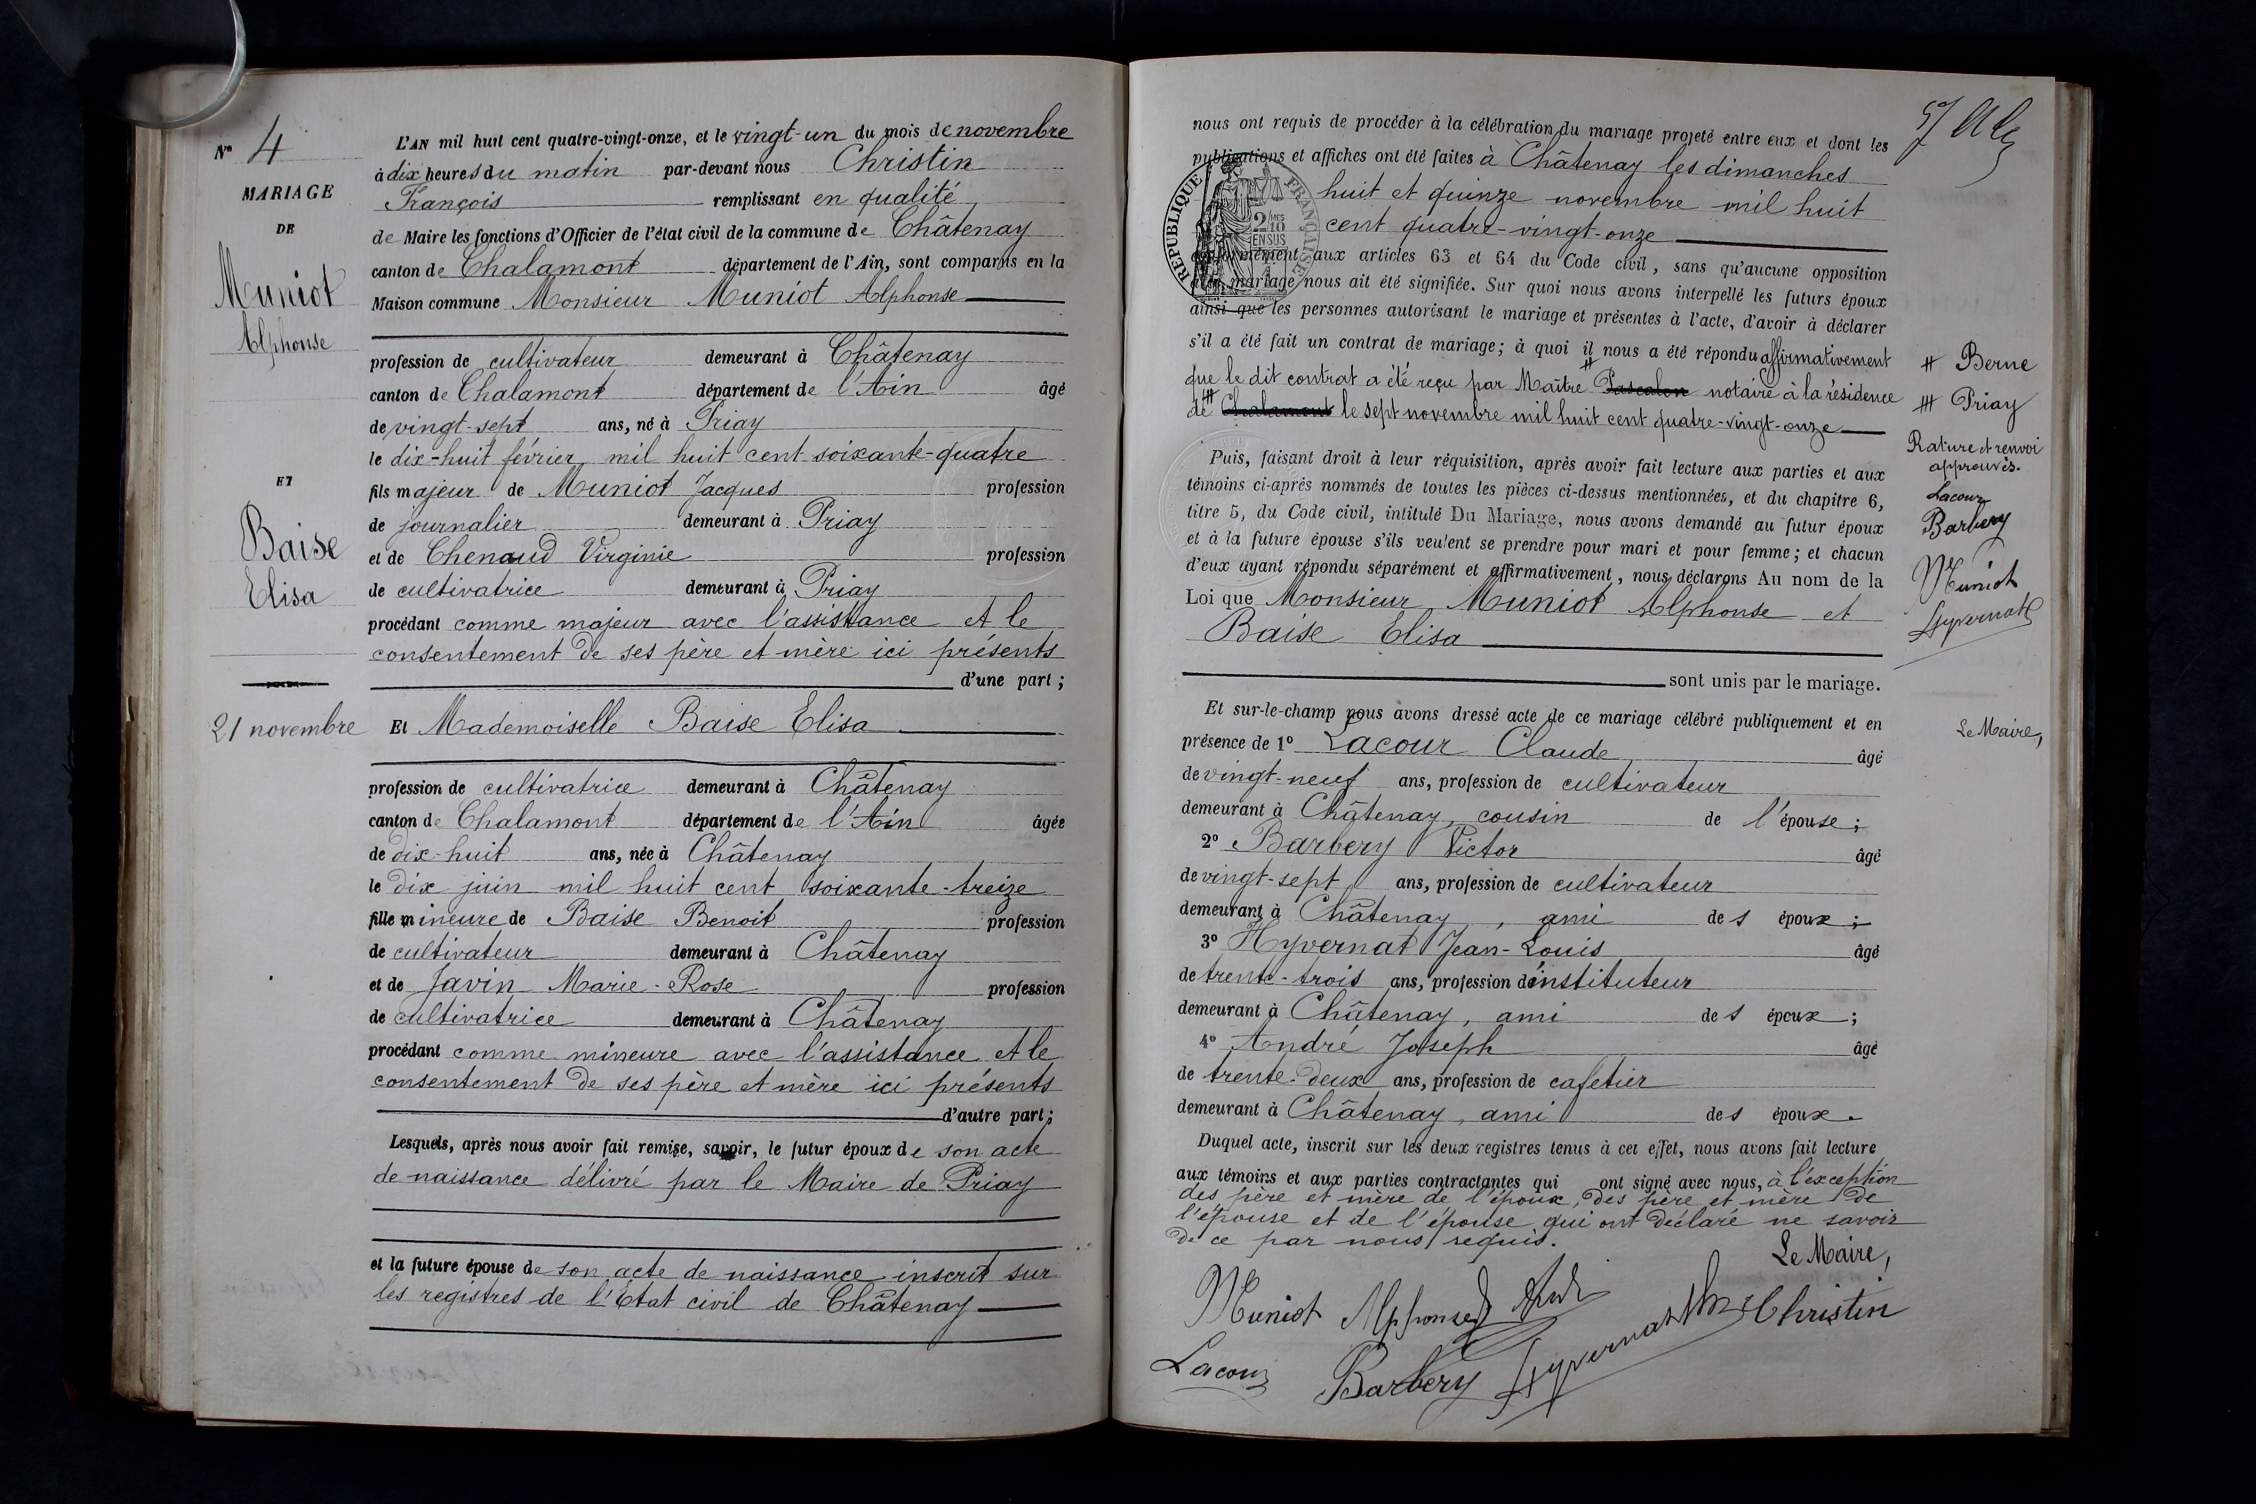 Nº 4
MARIAGE
DE
Muniot
Alphonse
ET
Baise
Elisa
21 novembre
L'AN mil huit cent quatre-vingt-onze, et le vingt-un du mois de novembre
à dix heures du matin par-devant nous Christin
François remplissant en qualité
de Maire les fonctions d'Officier de l'état civil de la commune de Châtenay
canton de Chalamont département de l'Ain, sont comparus en la
Maison commune Monsieur Muniot Alphonse
profession de cultivateur demeurant à Châtenay
canton de Chalamont département de l'Ain âgé
de vingt-sept ans, né à Priay
le dix-huit février mil huit cent soixante-quatre
fils majeur de Muniot Jacques profession
de journalier demeurant à Priay
et de Chenaud Virginie profession
de cultivatrice demeurant à Priay
procédant comme majeur avec l'assistance et le
consentement de ses père et mère ici présents
d'une part;
Et Mademoiselle Baise Elisa
profession de cultivatrice demeurant à Châtenay
canton de Chalamont département de l'Ain âgée
de dix-huit ans, née à Châtenay
le dix juin mil huit cent soixante-treize
fille mineure de Baise Benoit profession
de cultivateur demeurant à Châtenay
et de Javin Marie-Rose profession
de cultivatrice demeurant à Châtenay
procédant comme mineure avec l'assistance et le
consentement de ses père et mère ici présents
d'autre part;
Lesquels, après nous avoir fait remise, savoir, le futur époux de son acte
de naissance délivré par le Maire de Priay
et la future épouse de son acte de naissance inscrit sur
les registres de l'Etat civil de Châtenay
nous ont requis de procéder à la célébration du mariage projeté entre eux et dont les
publications et affiches ont été faites à Châtenay les dimanches
huit et quinze novembre mil huit
cent quatre-vingt-onze
RÉPUBLIQUE FRANÇAISE
2/10 EN SUS
conformément aux articles 63 et 64 du Code civil, sans qu'aucune opposition
audit mariage nous ait été signifiée. Sur quoi nous avons interpellé les futurs époux
ainsi que les personnes autorisant le mariage et présentes à l'acte, d'avoir à déclarer
s'il a été fait un contrat de mariage; à quoi il nous a été répondu affirmativement
que le dit contrat a été reçu par Maître # Pascalon notaire à la résidence
de # Chalamont le sept novembre mil huit cent quatre-vingt-onze
Puis, faisant droit à leur réquisition, après avoir fait lecture aux parties et aux
témoins ci-après nommés de toutes les pièces ci-dessus mentionnées, et du chapitre 6,
titre 5, du Code civil, intitulé Du Mariage, nous avons demandé au futur époux
et à la future épouse s'ils veulent se prendre pour mari et pour femme; et chacun
d'eux ayant répondu séparément et affirmativement, nous déclarons Au nom de la
Loi que Monsieur Muniot Alphonse et
Baise Elisa
sont unis par le mariage.
Et sur-le-champ nous avons dressé acte de ce mariage célébré publiquement et en
présence de 1º Lacour Claude âgé
de vingt-neuf ans, profession de cultivateur
demeurant à Châtenay, cousin de l'épouse;
2º Barbery Victor âgé
de vingt-sept ans, profession de cultivateur
demeurant à Châtenay, ami des époux;
3º Hyvernat Jean-Louis âgé
de trente-trois ans, profession d'instituteur
demeurant à Châtenay, ami des époux;
4º André Joseph âgé
de trente-deux ans, profession de cafetier
demeurant à Châtenay, ami des époux.
Duquel acte, inscrit sur les deux registres tenus à cet effet, nous avons fait lecture
aux témoins et aux parties contractantes qui ont signé avec nous, à l'exception
des père et mère de l'époux, des père et mère de
l'épouse et de l'épouse qui ont déclaré ne savoir
de ce par nous requis.
Le Maire,
Muniot Alphonse
Christin
Lacour
Barbery
Hyvernat
# Berne
# Priay
Rature et renvoi
approuvés.
Lacour
Barbery
Muniot
Hyvernat
Le Maire,